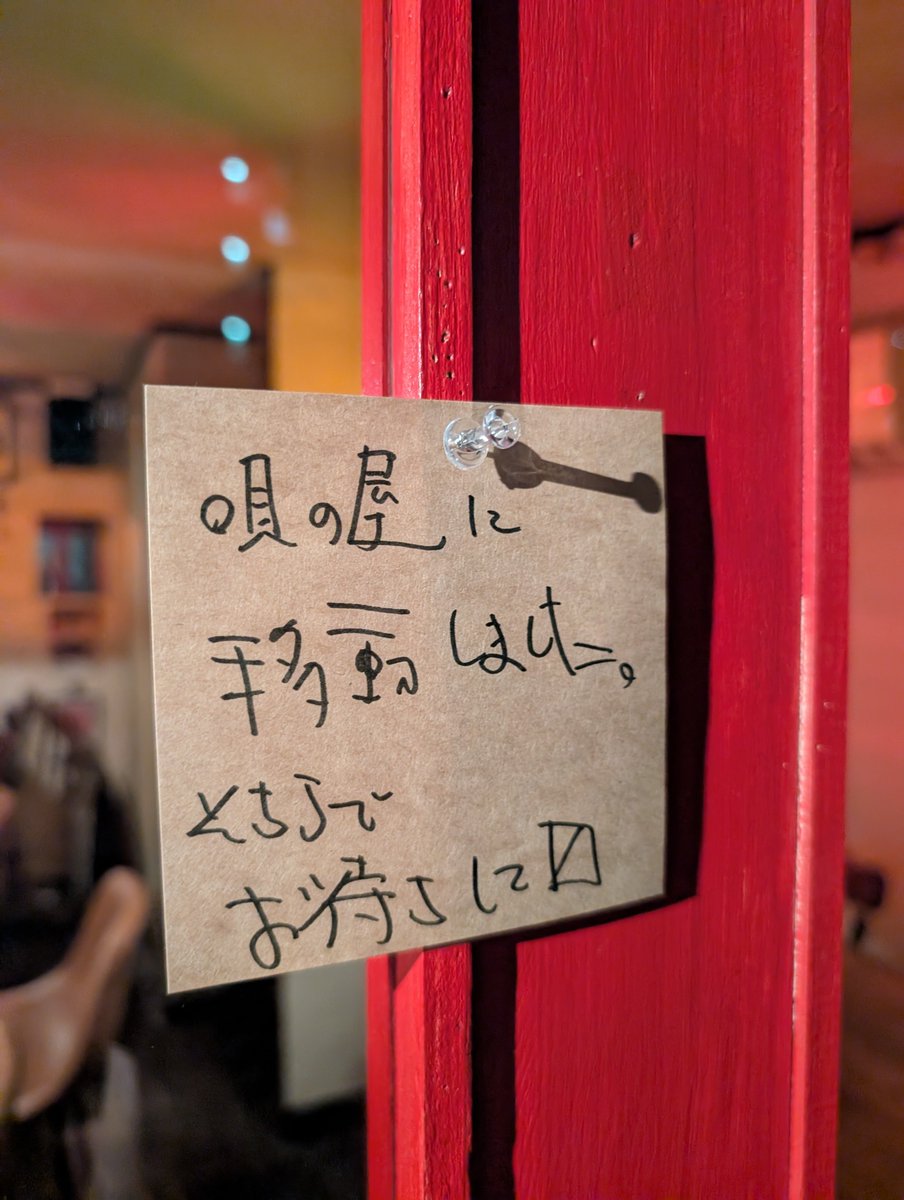 唄の屋に
移動しました。
そちらで
お待ちして〼